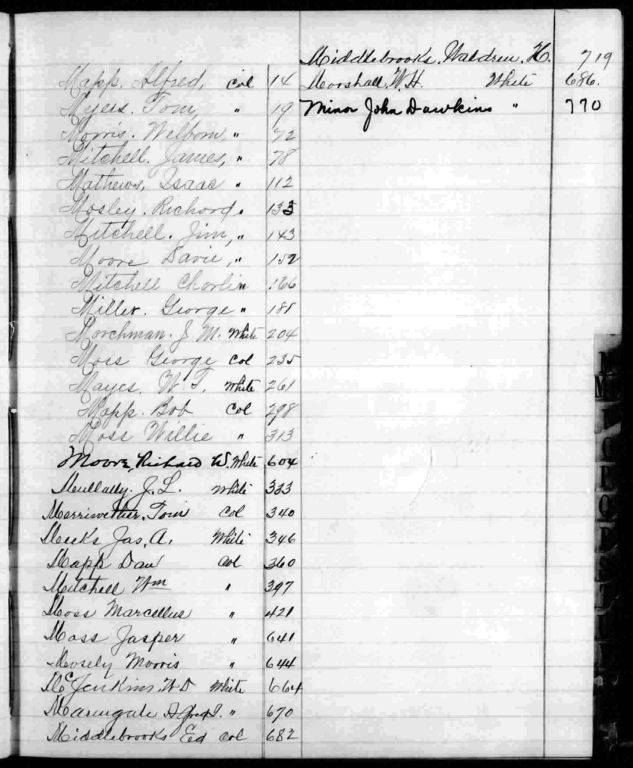 Mapp, Alfred, Col 14
Myers. Tom, " 19
Morris. Welborn, " 72
Mitchell. James, " 78
Mathews, Isaac " 112
Mosley. Richard, " 133
Mitchell. Jim, " 143
Moore Davie, " 152
Mitchell Charlie " 166
Miller. George " 181
Morchman. J M. White 204
Moss George Col 235
Mayes. W. T. White 261
Mapp. Bob Col 298
Moss Willie " 313
Moore, Richard W. White 604
Mullally. J. L. White 333
Merriwether, Tom Col 340
Meeks Jas, A. White 346
Mapp Dan Col 360
Mitchell Wm " 397
Moss Marcellus " 421
Moss Jasper " 641
Mosely Morris " 644
McJenkins W D White 664
" 670
Middlebrooks Ed Col 682
Middlebrooks, Waldren, H. 719
Marshall, W. H. White 686.
Minor John Dawkins " 770